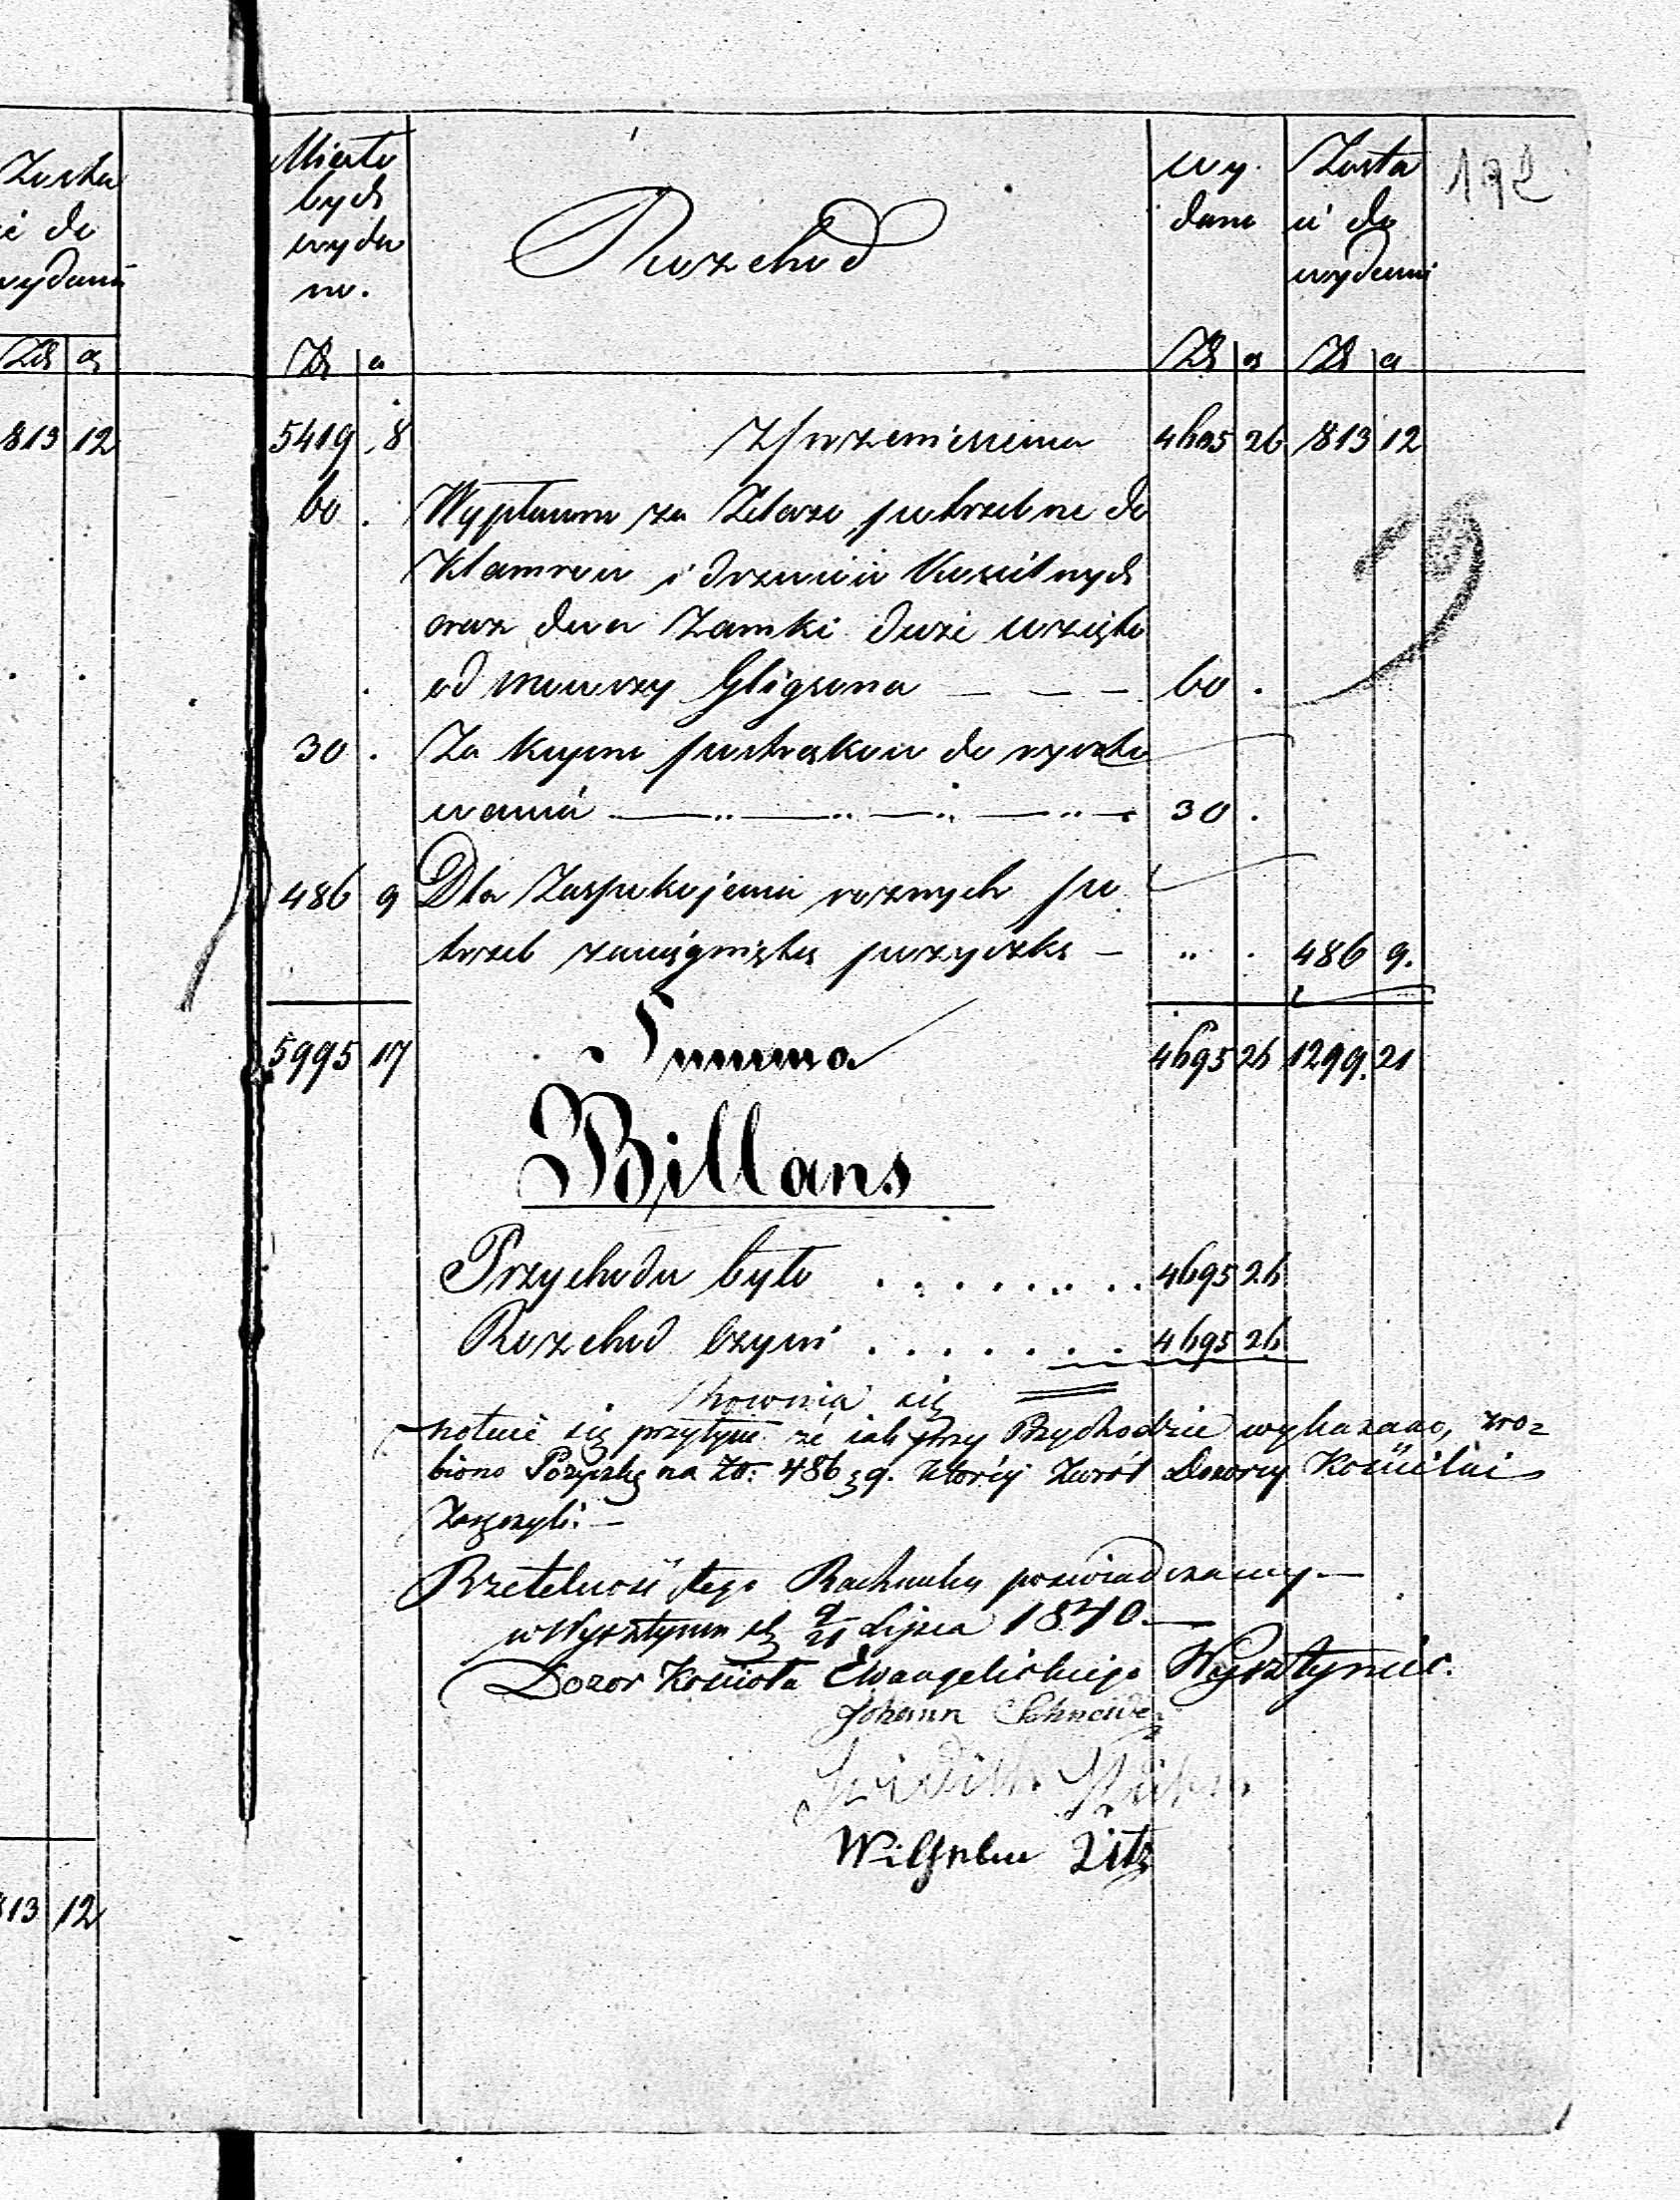 Zosta
ie do
wydania
Zł gr
813 12
813 12
192
Miało
bydź
wyda
no.
Rozchod
wy
dano
Zosta
ie do
wydania
Zł g
Zł g Zł g
5419 8 z przeniesienia 4605 26 813 12
60 . Wypłacono za Żelazo potrzebne do
Klamrow i drzwiów Kościelnych
oraz dwa Zamki duże wzięte
od 
 60 .
30 . Za kupno postrąkow do 
wania 30 .
486 9 Dla Zaspokojenia roznych po
trzeb zaciągnięta pożyczka — " . 486 9.
5995 17 Summa 4695 26 1299. 21
Billans
Przychodu było . . . . . . . . 4695 26
Rozchod czyni . . . . . . . 4695 26
rowna się
notuie się przytym że iak przy Przychodzie wykazano, zro=
biono Pożyczkę na Zł: 486 g 9. ktoréy Zwrót Dozorcy Kościelni

Rzetelność tego Rachunku poświadczamy.—
w Wysztyncu d 9/21 Lipca 1840.—
Dozor Kościoła Ewangelickiego Wysztyniec.
Johann Schneider
Wilhelm